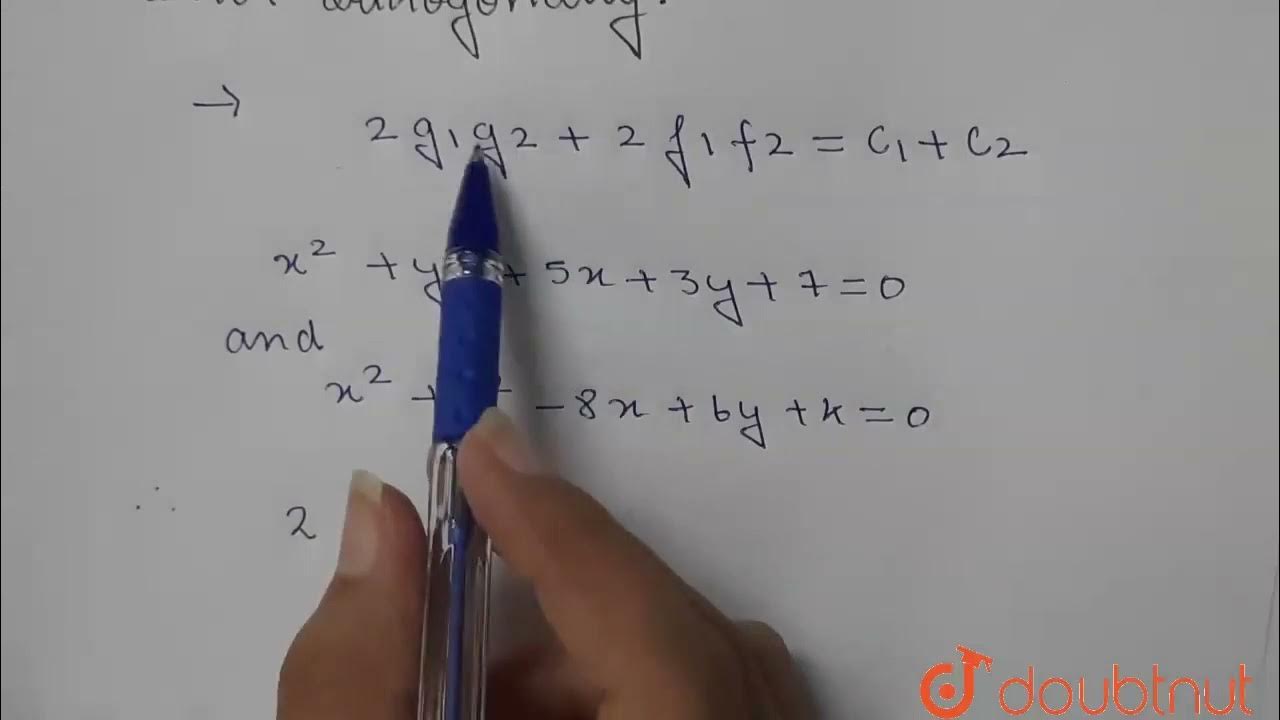 orthogonality.
→ 2g₁g₂ + 2f₁f₂ = c₁ + c₂
x² + y + 5x + 3y + 7 = 0
and
x² + - 8x + 6y + k = 0
∴ 2
doubtnut